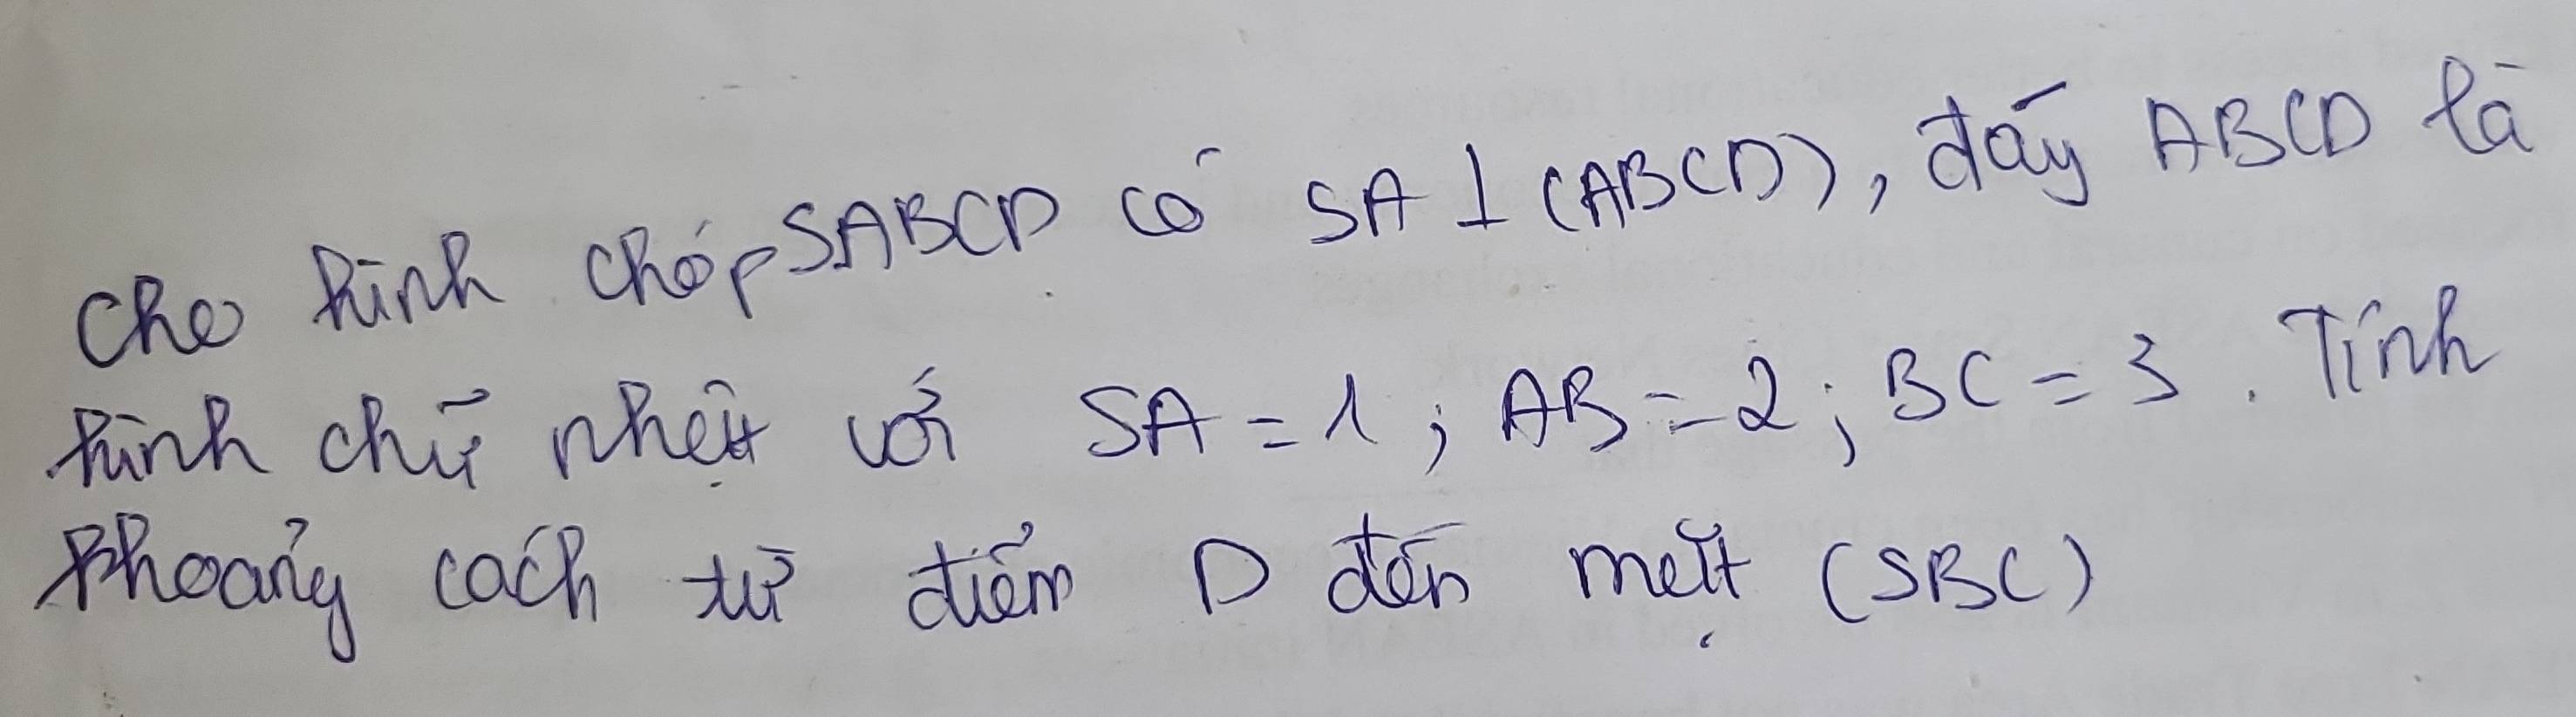 Cho hình chóp SABCD có SA ⊥ (ABCD), đáy ABCD là
hình chữ nhật với SA = 1 ; AB = 2 ; BC = 3 . Tính
khoảng cách từ điểm D đến mặt (SBC)